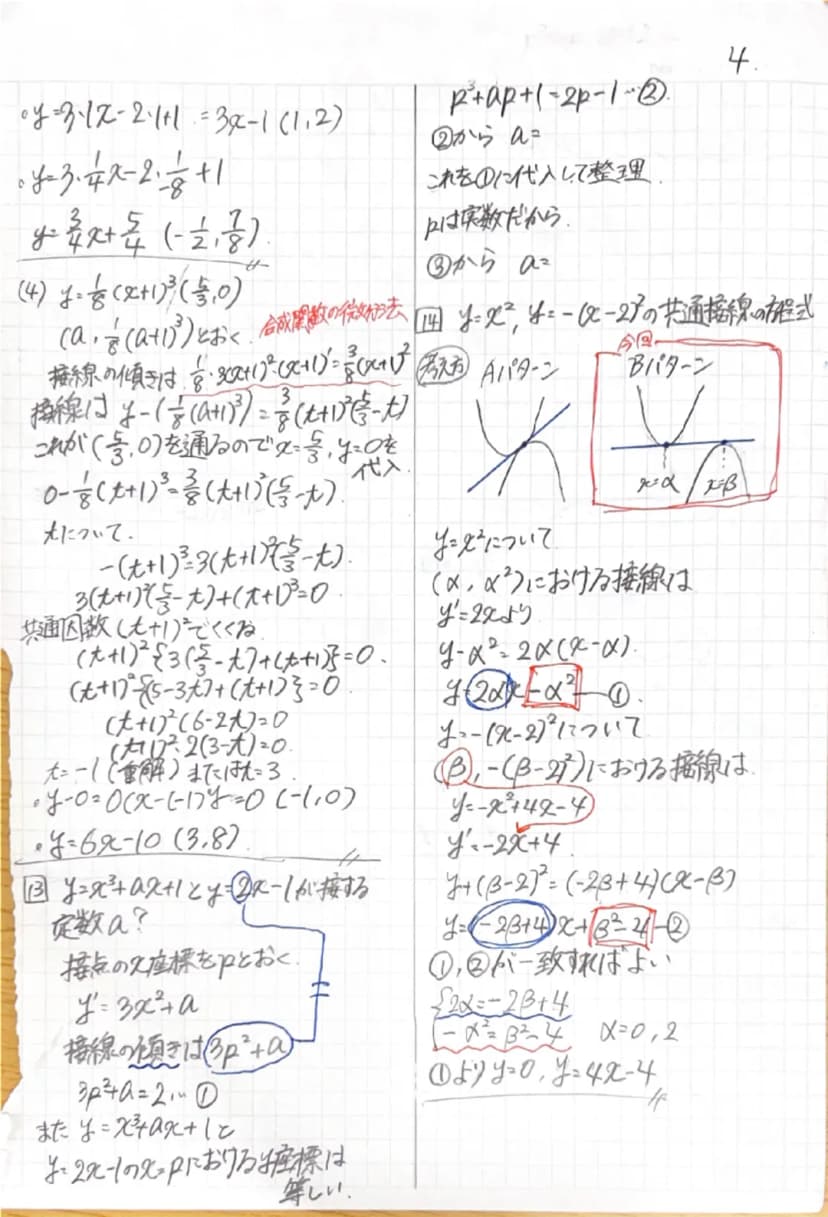 4.
・y=3・1x-2・1+1 =3x-1 (1,2)
・y=3・1/4x-2・1/-8+1
y=3/4x+5/4 (-1/2, 7/8)
(4) y=1/8(x+1)³ (5/3, 0)
(a, 1/8(a+1)³)とおく
合成関数の微分法
接線の傾きは 1/8・3(x+1)²・(x+1)'=3/8(x+1)²
接線は y-(1/8(a+1)³)=3/8(t+1)²(5/3-t)
これが(5/3,0)を通るのでx=5/3, y=0を
代入
0-1/8(t+1)³=3/8(t+1)²(5/3-t)
tについて
-(t+1)³=3(t+1)²(5/3-t)
3(t+1)²(5/3-t)+(t+1)³=0
共通因数(t+1)²でくくる
(t+1)²{3(5/3-t)+(t+1)}=0.
(t+1)²{(5-3t)+(t+1)}=0
(t+1)²(6-2t)=0
(t+1)²・2(3-t)=0.
t=-1(重解)またはt=3
・y-0=0(x-(-1) y=0 (-1,0)
・y=6x-10 (3,8)
13 y=x³+ax+1とy=2x-1が接する
定数a?
接点のx座標をpとおく.
y'=3x²+a
接線の傾きは3p²+a
3p²+a=2… ①
また y=x³+ax+1と
y=2x-1のx=pにおけるy座標は
等しい.
p³+ap+1=2p-1…②
②から a=
これを①に代入して整理.
pは実数だから
③から a=
14 y=x², y=-(x-2)²の共通接線の方程式
考え方 Aパターン
今回
Bパターン
x=α x=β
y=x²について
(α, α²)における接線は
y'=2xより
y-α²=2α(x-α)
y=2αx-α²—①
y=-(x-2)²について
(β, -(β-2)²)における接線は
y=-x²+4x-4
y'=-2x+4
y+(β-2)²=(-2β+4)(x-β)
y=(-2β+4)x+β²-4—②
①,②が一致すればよい
{2α=-2β+4
-α²=β²-4 α=0,2
①よりy=0, y=4x-4